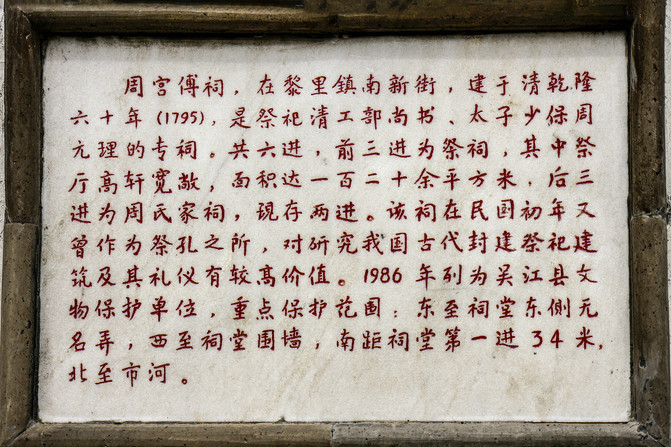 周宫傅祠，在黎里鎮南新街，建于清乾隆
六十年(1795)，是祭祀清工部尚书、太子少保周
元理的专祠。共六进，前三进为祭祠，其中祭
厅高轩宽敞，面积达一百二十余平方米，后三
进为周氏家祠，现存两进。该祠在民国初年又
曾作为祭孔之所，对研究我国古代封建祭祀建
筑及其礼仪有较高价值。1986年列为吴江县文
物保护单位，重点保护范围：东至祠堂东侧无
名弄，西至祠堂围墙，南距祠堂第一进34米，
北至市河。